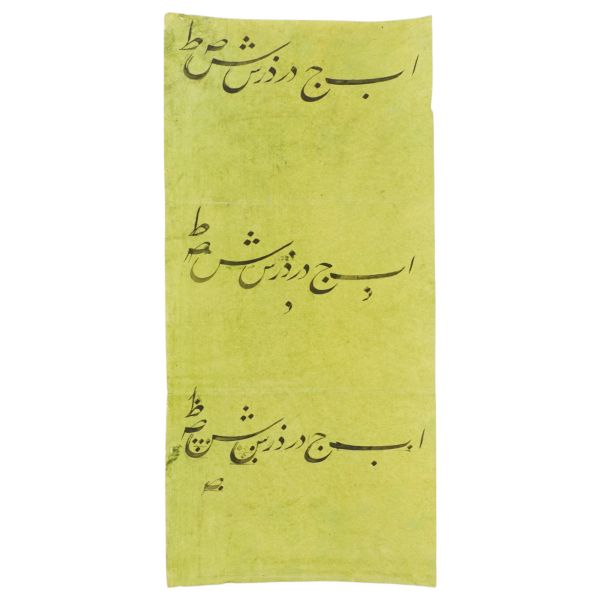 ا ب ج در ذرس ش ص ط
ا ب ج در ذرس ش ص ط
ا ب ج در ذرس ش ص ظ